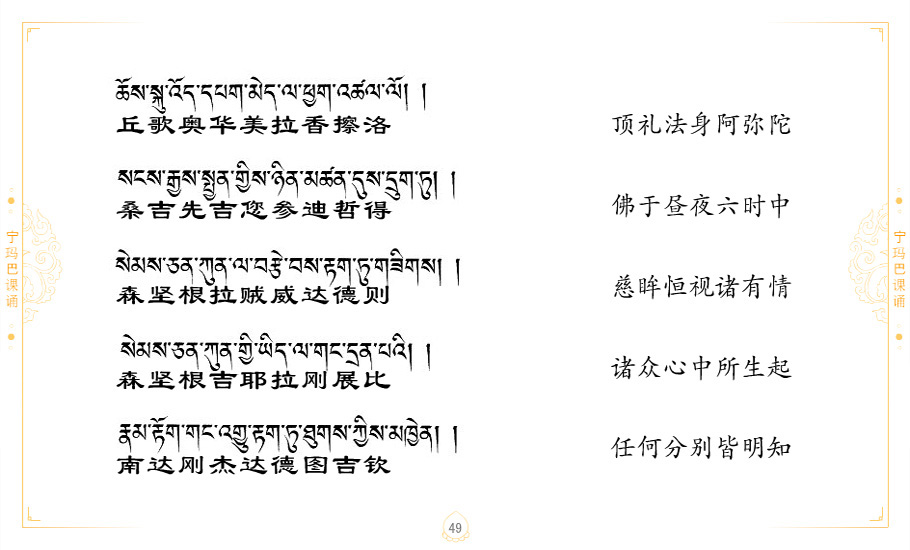 ཆོས་སྐུ་འོད་དཔག་མེད་ལ་ཕྱག་འཚལ་ལོ། །
丘歌奥华美拉香擦洛
顶礼法身阿弥陀
སངས་རྒྱས་སྤྱན་གྱིས་ཉིན་མཚན་དུས་དྲུག་ཏུ། །
桑吉先吉您参迪哲得
佛于昼夜六时中
སེམས་ཅན་ཀུན་ལ་བརྩེ་བས་རྟག་ཏུ་གཟིགས། །
森坚根拉贼威达德则
慈眸恒视诸有情
སེམས་ཅན་ཀུན་གྱི་ཡིད་ལ་གང་དྲན་པའི། །
森坚根吉耶拉刚展比
诸众心中所生起
རྣམ་རྟོག་གང་འགྱུ་རྟག་ཏུ་ཐུགས་ཀྱིས་མཁྱེན། །
南达刚杰达德图吉钦
任何分别皆明知
宁玛巴课诵
宁玛巴课诵
49